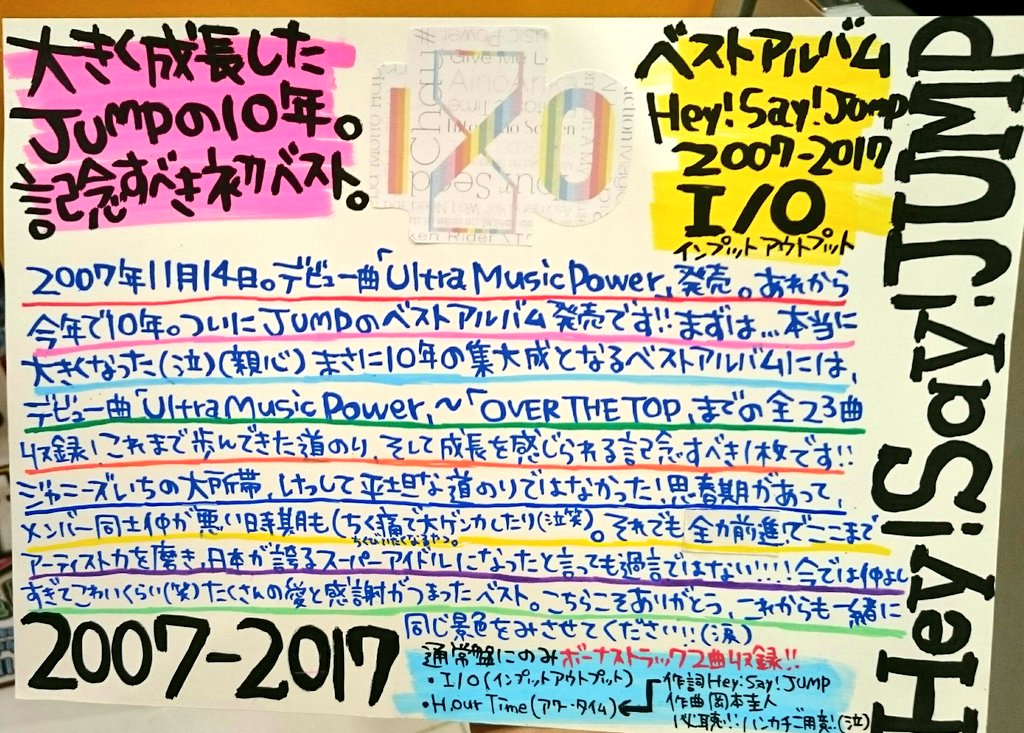 大きく成長した
JUMPの10年。
記念すべき初ベスト。
I/O
ベストアルバム
Hey!Say!Jump
2007-2017
I/O
インプットアウトプット
Hey!Say!JUMP
2007年11月14日。デビュー曲「Ultra Music Power」発売。あれから
今年で10年。ついにJUMPのベストアルバム発売です!!まずは…本当に
大きくなった(泣)(親心)まさに10年の集大成となるベストアルバムには、
デビュー曲「Ultra Music Power」~「OVER THE TOP」までの全23曲
収録!これまで歩んできた道のり、そして成長を感じられる記念すべき1枚です!!
ジャニーズいちの大所帯、けっして平坦な道のりではなかった!思春期があって、
メンバー同士仲が悪い時期も(ちく痛で大ゲンカしたり(泣笑)。それでも全力前進!でここまで
ちくびいたくなるやつ。
アーティスト力を磨き、日本が誇るスーパーアイドルになったと言っても過言ではない!!!!今では仲よし
すぎてこわいくらい(笑)たくさんの愛と感謝がつまったベスト。こちらこそありがとう、これからも一緒に
同じ景色をみさせてください!!(涙)
2007-2017
通常盤にのみボーナストラック2曲収録!!
・I/O(インプットアウトプット)
・H.our Time(アワー・タイム)
作詞Hey!Say!JUMP
作曲岡本圭人
必聴!!ハンカチご用意!(泣)